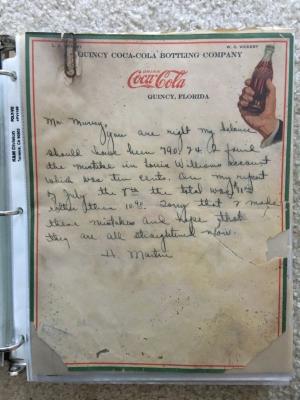 W. G. WEDEBY
QUINCY COCA-COLA BOTTLING COMPANY
DRINK
Coca-Cola
QUINCY, FLORIDA
Mr. Murray,
You are right my balance
should have been 790.24 I found
the mistake in Louis Williams account
which was ten cents. On my report
of July the 8th the total was
rather than 10.90. Sorry that I made
these mistakes and hope that
they are all straightened now.
H. Martin